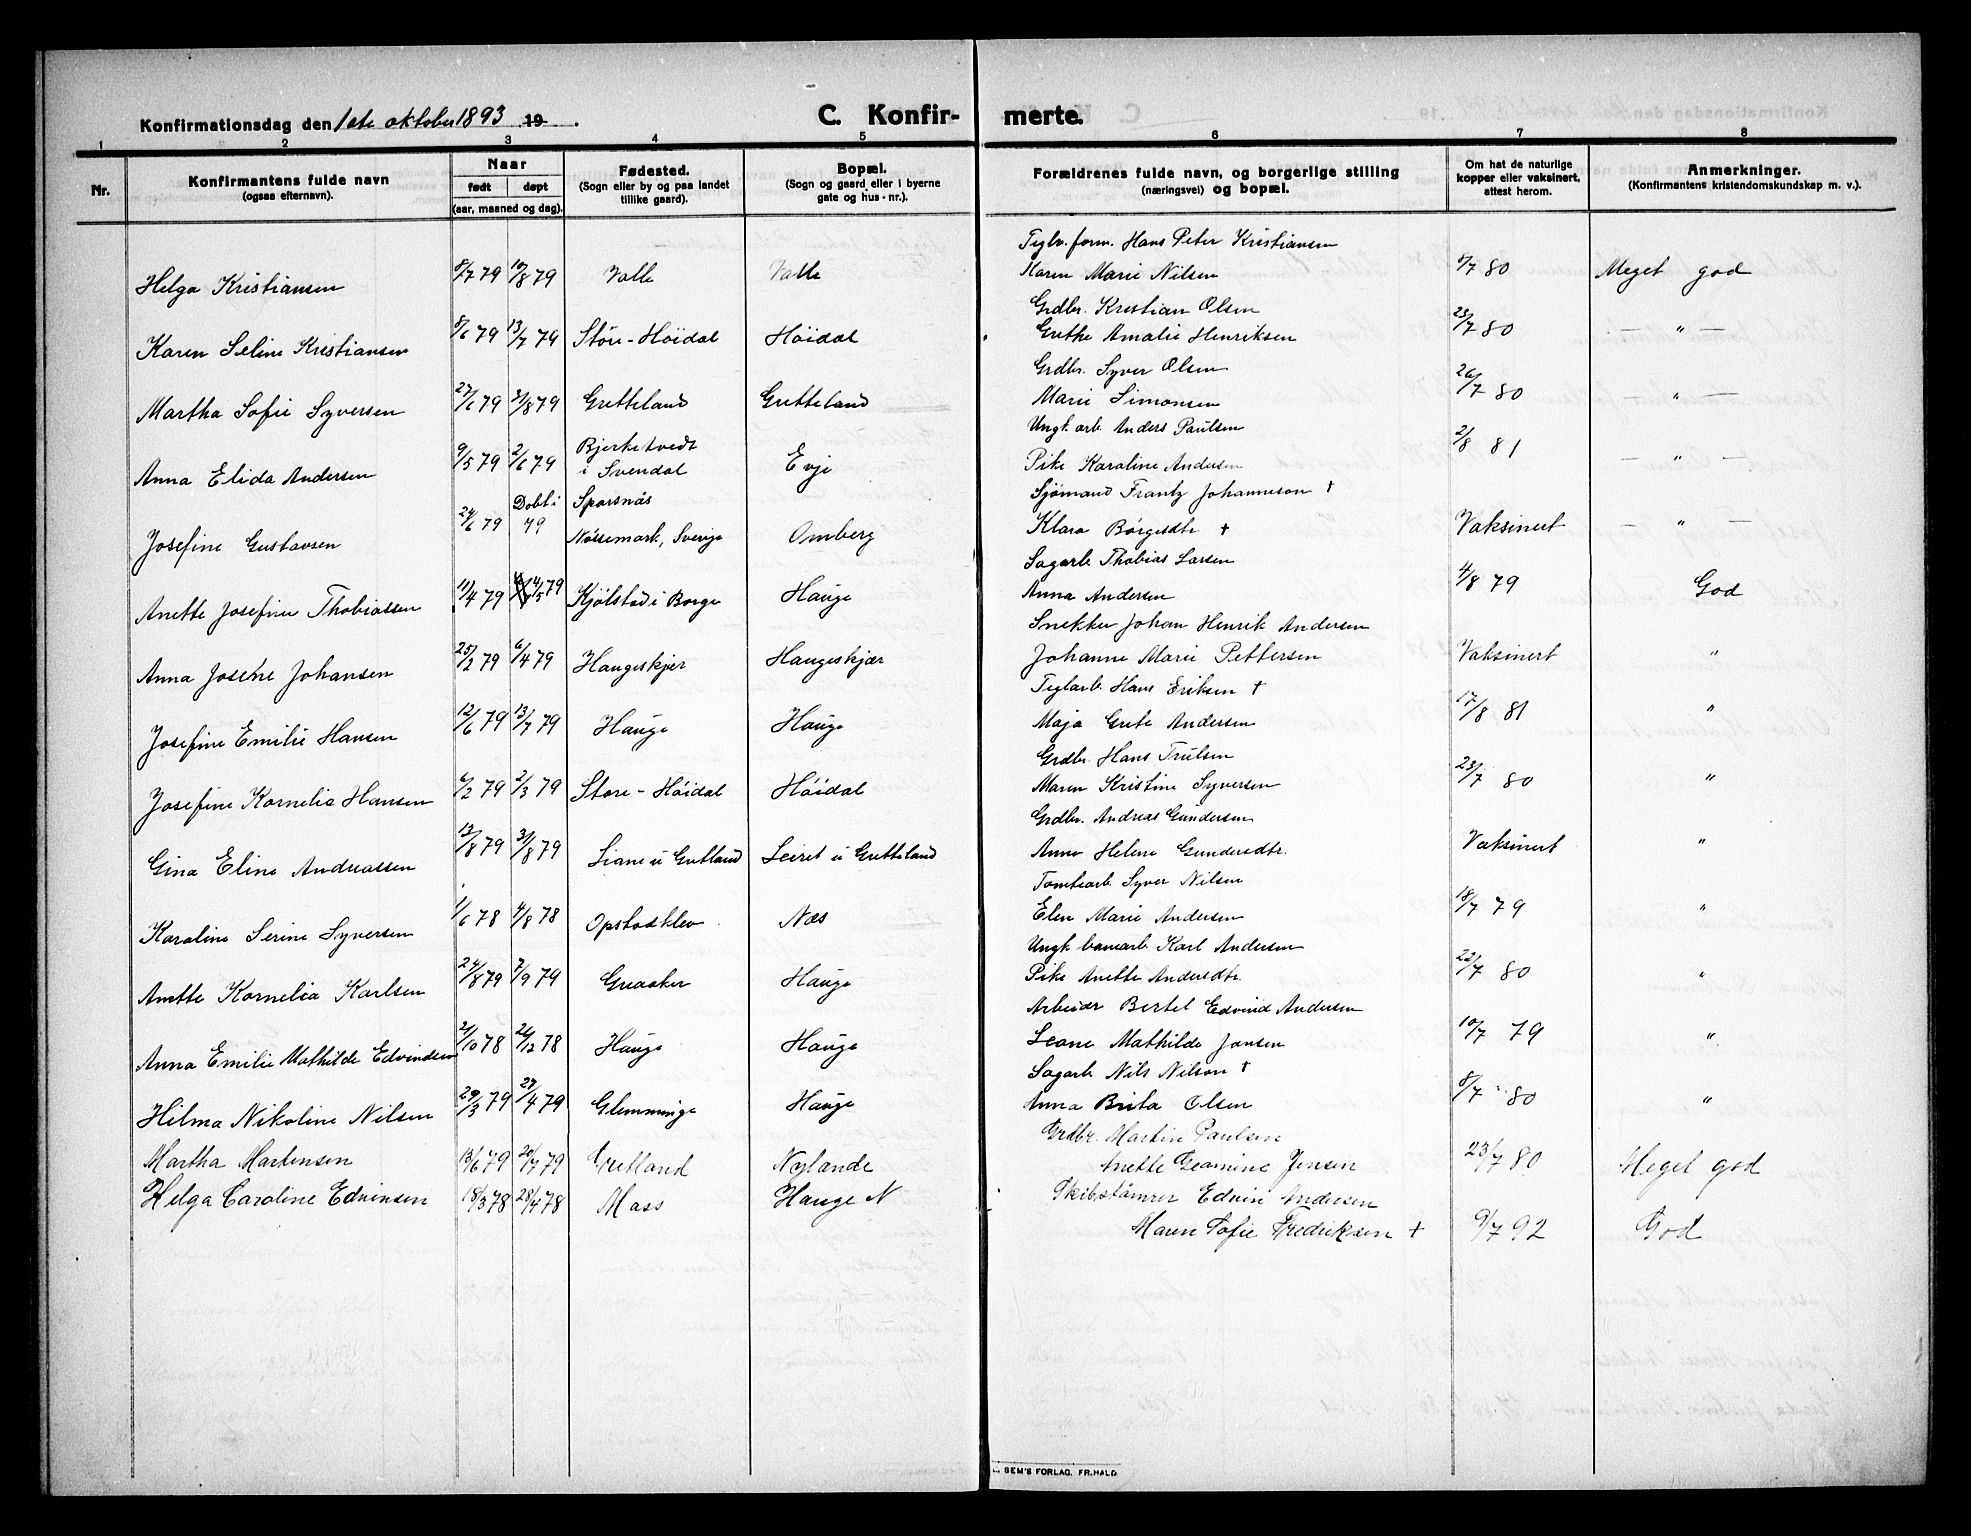 Konfirmationsdag den 1ste oktober 1893 19
C. Konfir- merte.
1 2 3 4 5 6 7 8
Nr.
Konfirmantens fulde navn
(ogsaa efternavn).
Naar
født døpt
(aar, maaned og dag).
Fødested.
(Sogn eller by og paa landet
tillike gaard).
Bopæl.
(Sogn og gaard eller i byerne
gate og hus-nr.).
Forældrenes fulde navn, og borgerlige stilling
(næringsvei) og bopæl.
Om hat de naturlige
kopper eller vaksinert,
attest herom.
Anmerkninger.
(Konfirmantens kristendomskundskap m. v.).
Teglv.form. Hans Peter Kristiansen
Helga Kristiansen 8/7 79 10/8 79 Valle Valle Karen Marie Nilsen 8/7 80 Meget god
Grdbr. Kristian Olsen
Karen Seline Kristiansen 8/6 79 13/7 79 Store-Höidal Höidal Grethe Amalie Henriksen 23/7 80 — " —
Grdbr. Syver Olsen
Martha Sofie Syversen 27/6 79 31/8 79 Gretteland Gretteland Marie Simonsen 26/7 80 — " —
Ungk. arb. Anders Paulsen
Anna Elida Andersen 9/5 79 2/6 79 Bjerketvedt
i Svendal Evje Pike Karoline Andersen 2/8 81 — " —
Sjömand Frantz Johannesson †
Josefine Gustavsen 24/6 79 Döbt i
79 Sparsnäs
Nössemark, Sverige Omberg Klara Börgesdtr † Vaksinert — " —
Sagarb. Thobias Larsen
Anette Josefine Thobiassen 11/4 79 4/5 79 Kjölstad i Borge Hauge Anna Andersen 4/8 79 God
Snekker Johan Henrik Andersen
Anna Josefine Johansen 25/2 79 6/4 79 Haugeskjær Haugeskjær Johanne Marie Pettersen Vaksinert "
Teglarb. Hans Eriksen †
Josefine Emilie Hansen 12/6 79 13/7 79 Hauge Hauge Maja Grete Andersen 17/8 81 "
Grdbr. Hans Trulsen
Josefine Kornelia Hansen 6/2 79 2/3 79 Store-Höidal Höidal Maren Kristine Syversen 23/7 80 "
Grdbr. Andreas Gundersen
Gina Eline Andreassen 13/8 79 31/8 79 Liane u Gretland Leiret u Gretteland Anne Helene Gundersdtr. Vaksinert "
Tomtearb. Syver Nilsen
Karoline Serine Syversen 1/6 78 4/8 78 Opstadklev Næs Elen Marie Andersen 18/7 79 "
Ungk. banearb. Karl Andersen
Anette Kornelia Karlsen 24/8 79 7/9 79 Graaker Hauge Pike Anette Andersdtr. 22/7 80 "
Arbeider Bertel Edvind Andersen
Anna Emilie Mathilde Edvindsen 21/10 78 26/12 78 Hauge Hauge Leane Mathilde Jansen 10/7 79 "
Sagarb. Nils Nilson †
Hilma Nikoline Nilsen 29/3 79 27/4 79 Glemminge Hauge Anna Brita Olsen 8/7 80 "
Grdbr. Martin Paulsen
Martha Martensen 13/6 79 20/7 79 Gretland Nylande Anette Geamine Jensen 23/7 80 Meget god
Helga Caroline Edvinsen 18/3 78 28/4 78 Moss Hauge N Skibstömrer Edvin Andersen
Maren Sofie Fredriksen † 9/7 92 God
SEM'S FORLAG. FR.HALD.